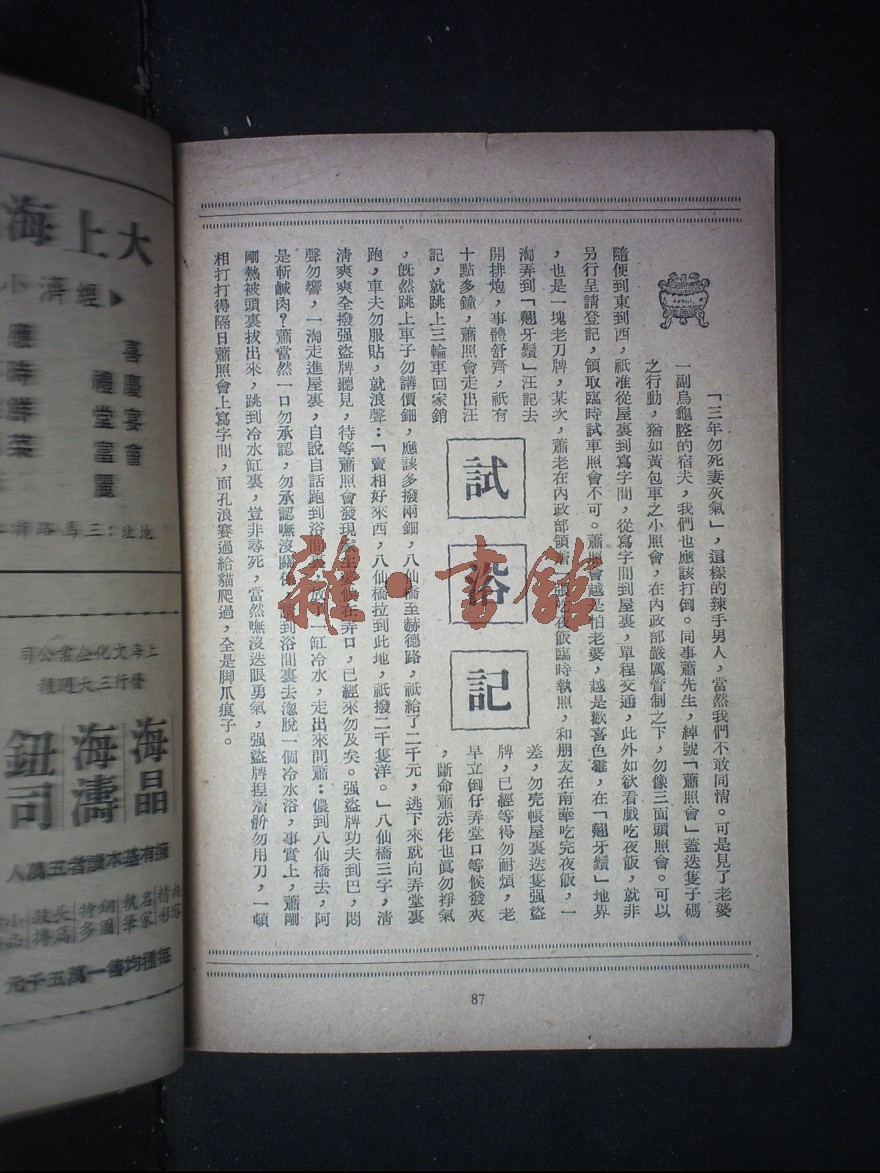 試浴記
「三年勿死妻灰氣」，這樣的辣手男人，當然我們不敢同情。可是見了老婆
一副烏龜腔的宿夫，我們也應該打倒。同事蕭先生，綽號「蕭照會」蓋迭隻子碼
之行動，猶如黃包車之小照會，在內政部嚴厲管制之下，勿像三面頭照會。可以
隨便到東到西，祇准從屋裏到寫字間，從寫字間到屋裏，單程交通，此外如欲看戲吃夜飯，就非
另行呈請登記，領取臨時試車照會不可。蕭照會越是怕老婆，越是歡喜色霾，在「翹牙鬚」地界
，也是一塊老刀牌，某次，蕭老在內政部領着一張吃夜飯臨時執照，和朋友在南華吃完夜飯，一
淘弄到「翹牙鬚」汪記去
開排炮，事體舒齊，祇有
十點多鐘，蕭照會走出汪
記，就跳上三輪車回家銷
差，勿壳帳屋裏迭隻强盜
牌，已經等得勿耐煩，老
早立倒仔弄堂口等候發夾
，斷命蕭赤佬也眞勿掙氣
，旣然跳上車子勿講價鈿，應該多撥兩鈿，八仙橋至赫德路，祇給了二千元，逃下來就向弄堂裏
跑，車夫勿服貼，就浪聲：「賣相好來西，八仙橋拉到此地，祇撥二千隻洋。」八仙橋三字，淸
淸爽爽全撥强盜牌聽見，待等蕭照會發現家主婆候在弄口，已經來勿及矣。强盜牌功夫到巴，悶
聲勿響，一淘走進屋裏，自說自話跑到浴間裏，放了一缸冷水，走出來問蕭：儂到八仙橋去，阿
是斬鹹肉？蕭當然一口勿承認，勿承認嘸沒關係，請到浴間裏去忽脫一個冷水浴，事實上，蕭剛
剛熱被頭裏拔出來，跳到冷水缸裏，豈非尋死，當然嘸沒迭眼勇氣，强盜牌揑着骱勿用刀，一頓
相打打得隔日蕭照會上寫字間，面孔浪賽過給貓爬過，全是脚爪痕子。
87
大上海
經濟小
喜慶宴會
禮堂富麗
應時鮮菜
地址：三馬路
上海文化企業公司
發行三大週報
海晶
海濤
鈕司
擁有基本讀者五萬人
內容精彩
名家執筆
銅圖特多
長篇
小品
每種均售一萬五千元
雜·書館